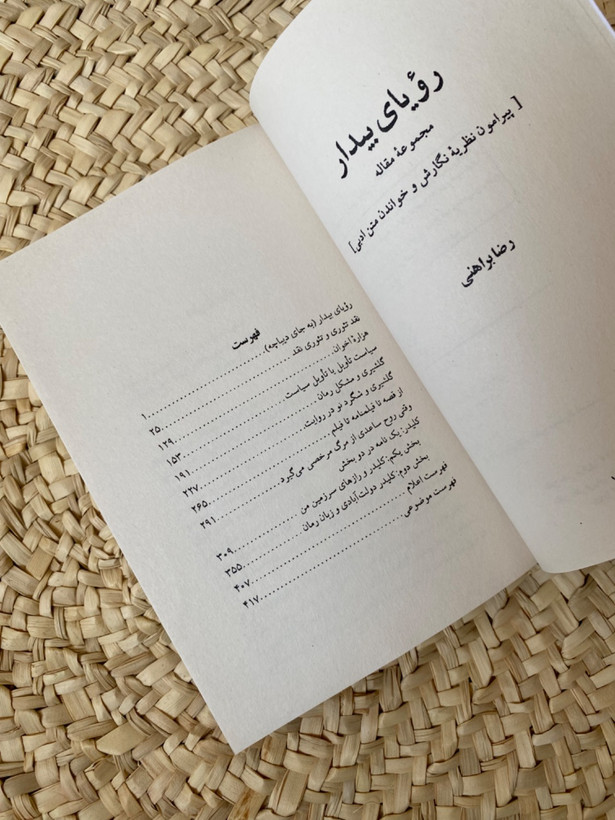 رؤیای بیدار
مجموعهٔ مقاله
[ پیرامون نظریهٔ نگارش و خواندن متن ادبی]
رضا براهنی
فهرست
رؤیای بیدار (به جای دیباچه) ........ ۱
نقد تئوری و تئوری نقد ........ ۲۵
هزارهٔ اخوان ........ ۱۲۹
سیاست تأویل یا تأویل سیاست ........ ۱۵۳
گلشیری و مشکل رمان ........ ۱۹۱
گلشیری و شگرد نو در روایت ........ ۲۲۷
از قصه تا فیلمنامه تا فیلم ........ ۲۶۵
وقتی روح ساعدی از مرگ مرخصی می‌گیرد ........ ۲۹۱
کلیدر: یک نامه در دو بخش
بخش یکم: کلیدر و رازهای سرزمین من ........ ۳۰۹
بخش دوم: کلیدر دولت‌آبادی و زبان رمان ........ ۳۵۵
فهرست اعلام ........ ۴۰۷
فهرست موضوعی ........ ۴۱۷